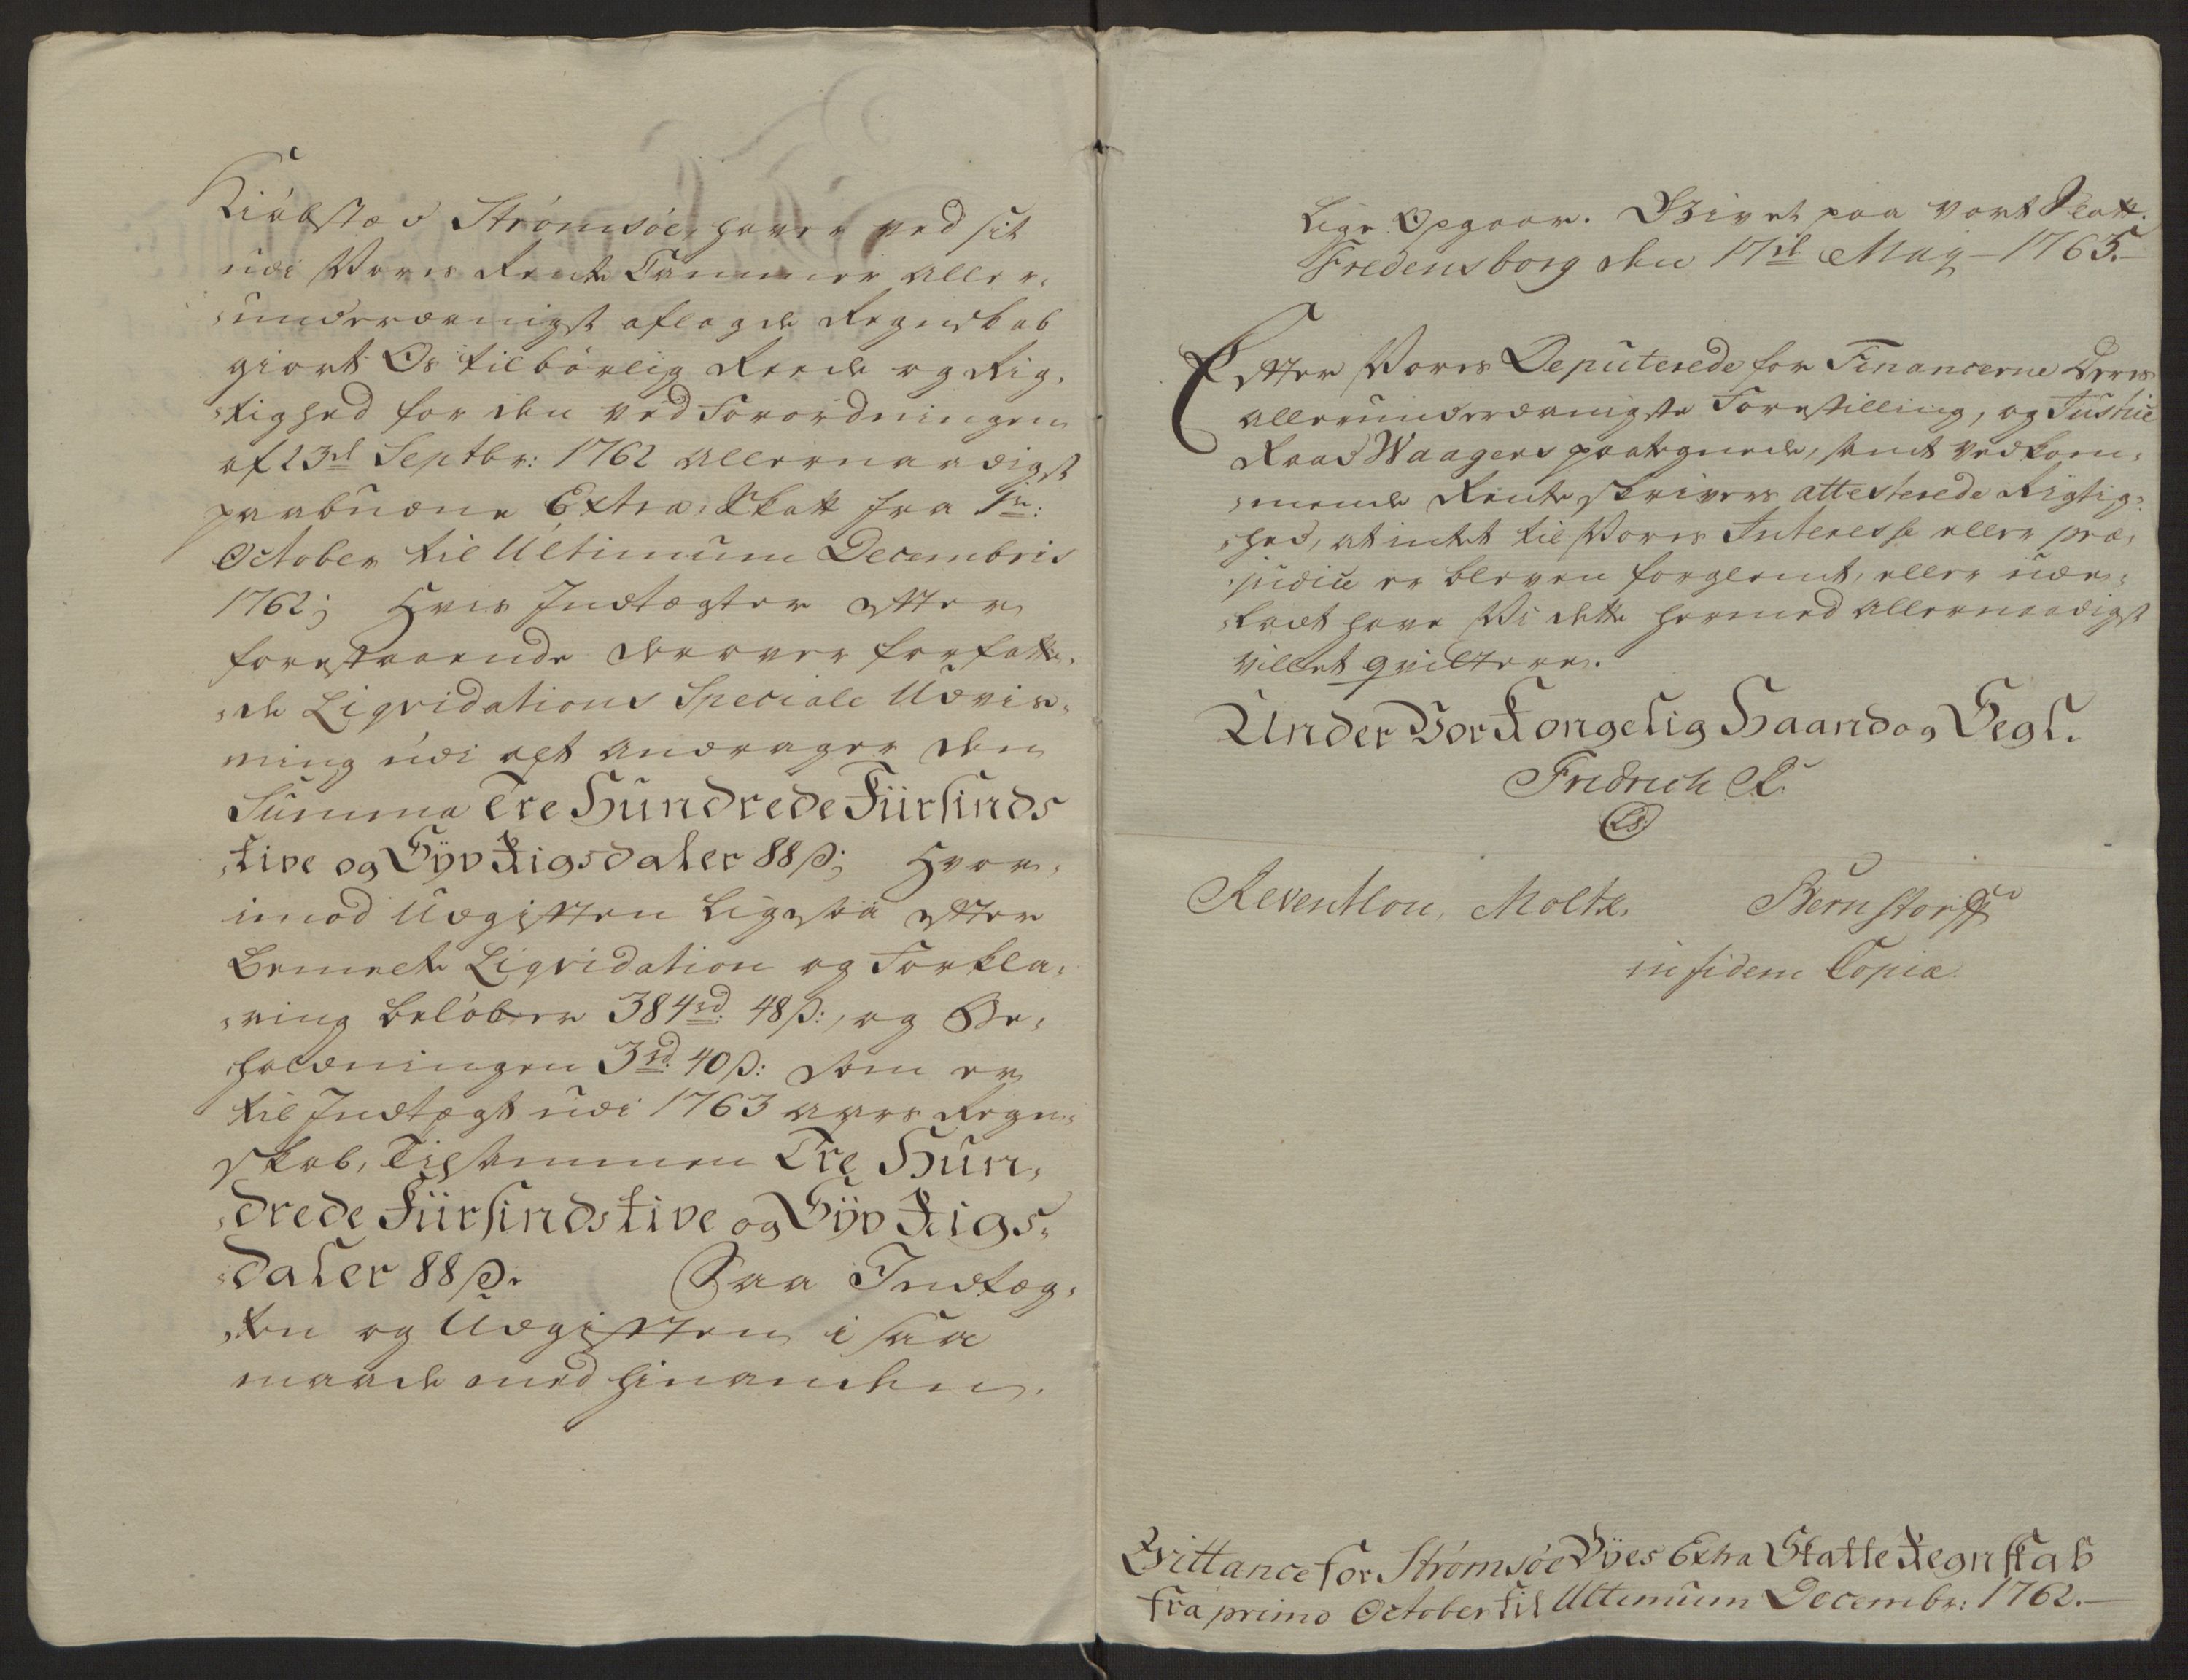 Kiöbstæd Strømsöe, haver ved sit
udi Vores Rente Cammer aller,
,underdanigst aflagde Regnskab
giort Os tilbörlig Reede og Rig,
,tighed for den ved Forordningen
af 23de Septbr: 1762 allernaadigst
paabudne Extra Skatt fra 1te:
October til Ultimum Decembris
1762; Hvis Indtægter efter
forestaaende derover forfatte,
,de Liqvidations Speciale Udvis,
ning udi alt andrager den
Summa Tre Hundrede Fürsinds
,tive og Syv Rigsdaler 88 ß; Hvor,
imod Udgiften ligesaa efter
bemelte Liqvidation og Forkla,
,ring belöber 384 rd: 48 ß:, og Be,
holdningen 3 rd: 40 ß: som er
til Indtægt udi 1763 aars Regn,
skab, Tilsammen Tre Hun,
,drede Fürsindstive og Syv Rigs,
,daler 88 ß. Saa Indtæg,
,ten og Udgiften i saa
maade med hinanden
lige Opgaar. Givet paa vort Slott
Fredensborg den 17de Maij 1765.
Efter Vores Deputerede for Financerne Deres
allerunderdanigste Forestilling, og Justice
Raad Waagers paategnede, samt vedkom,
,mende Renteskrivers attesterede Rigtig,
,hed, at intet til Vores Interesse eller præ,
,judice er bleven forglemt, eller ude,
,ladt have Vi dette hermed allernaadigst
villet qvittere.
Under Vor Kongelig Haand og Segl.
Fridrich R.
LS
Reventlou, Moltke, Bernstorff
in fidem Copiæ
Qvittance for Strømsöe Byes Extra Skatte Regnskab
fra primo October til Ultimum Decembr: 1762.